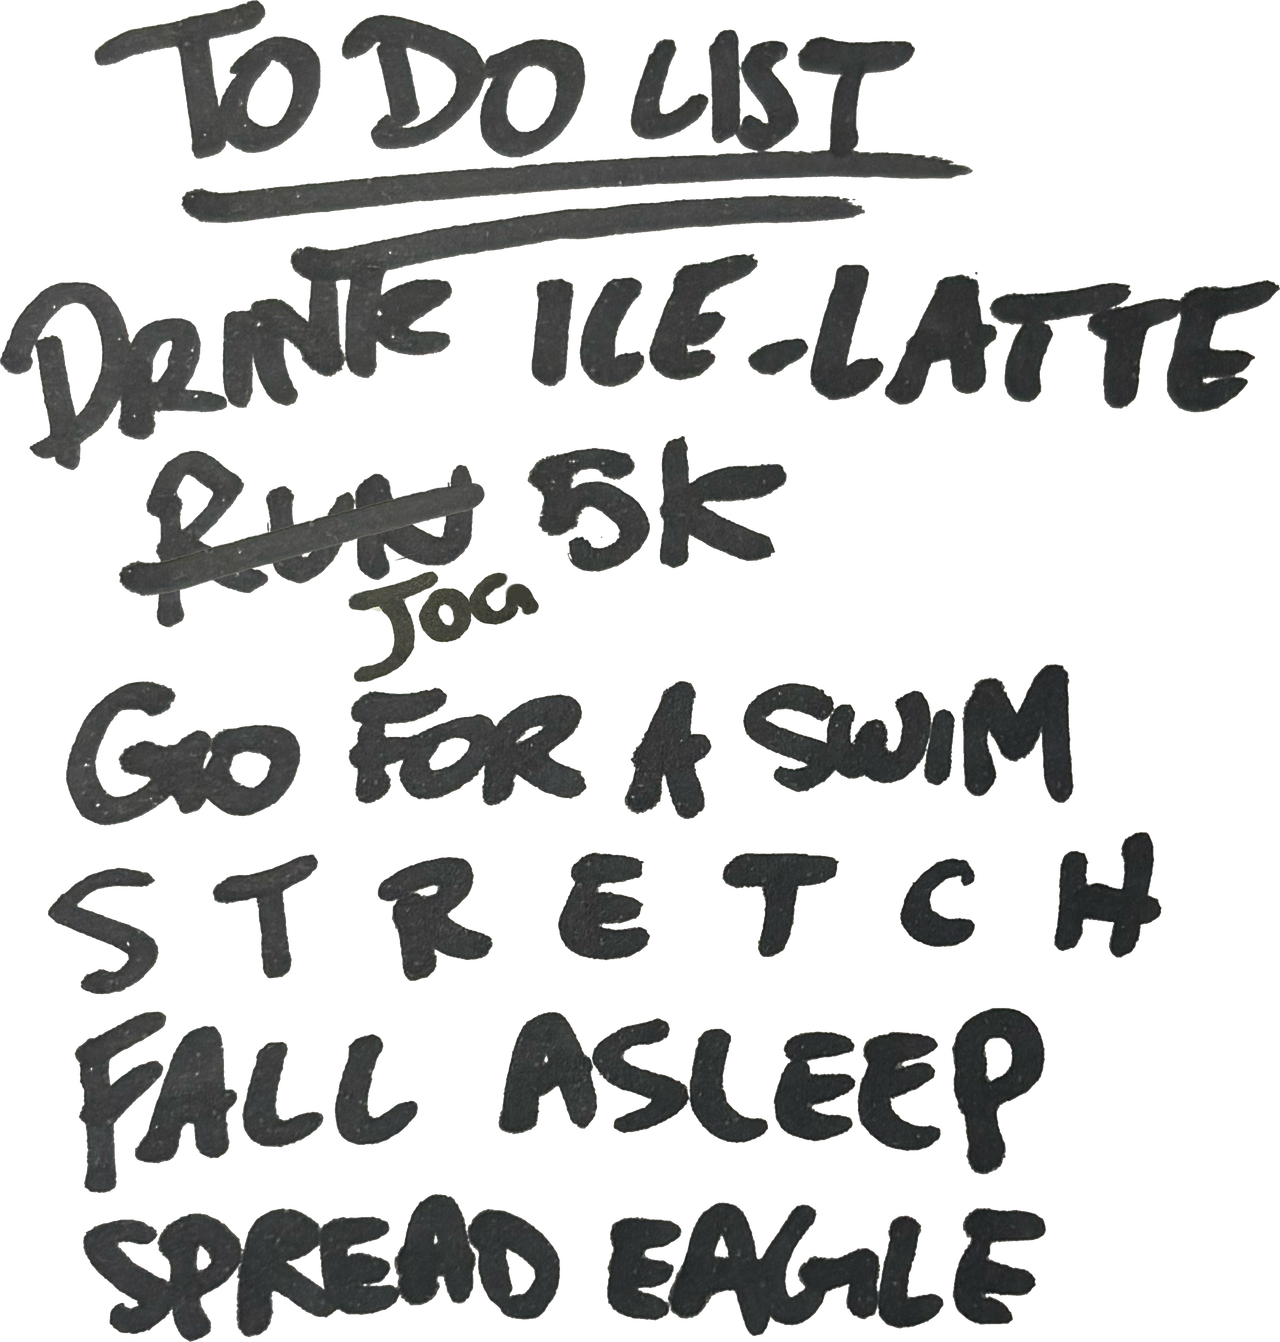 TO DO LIST
DRINK ICE-LATTE
RUN 5K
JOG
GO FOR A SWIM
STRETCH
FALL ASLEEP
SPREAD EAGLE